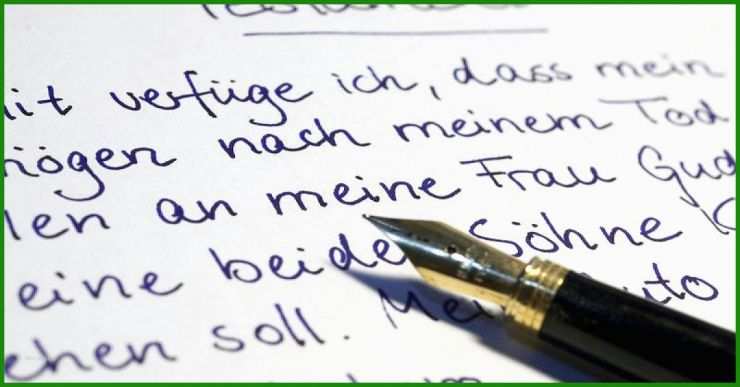 Testament
mit verfüge ich, dass mein
mögen nach meinem Tod
len an meine Frau Gud
eine beiden Söhne
ehen soll. Mein Auto